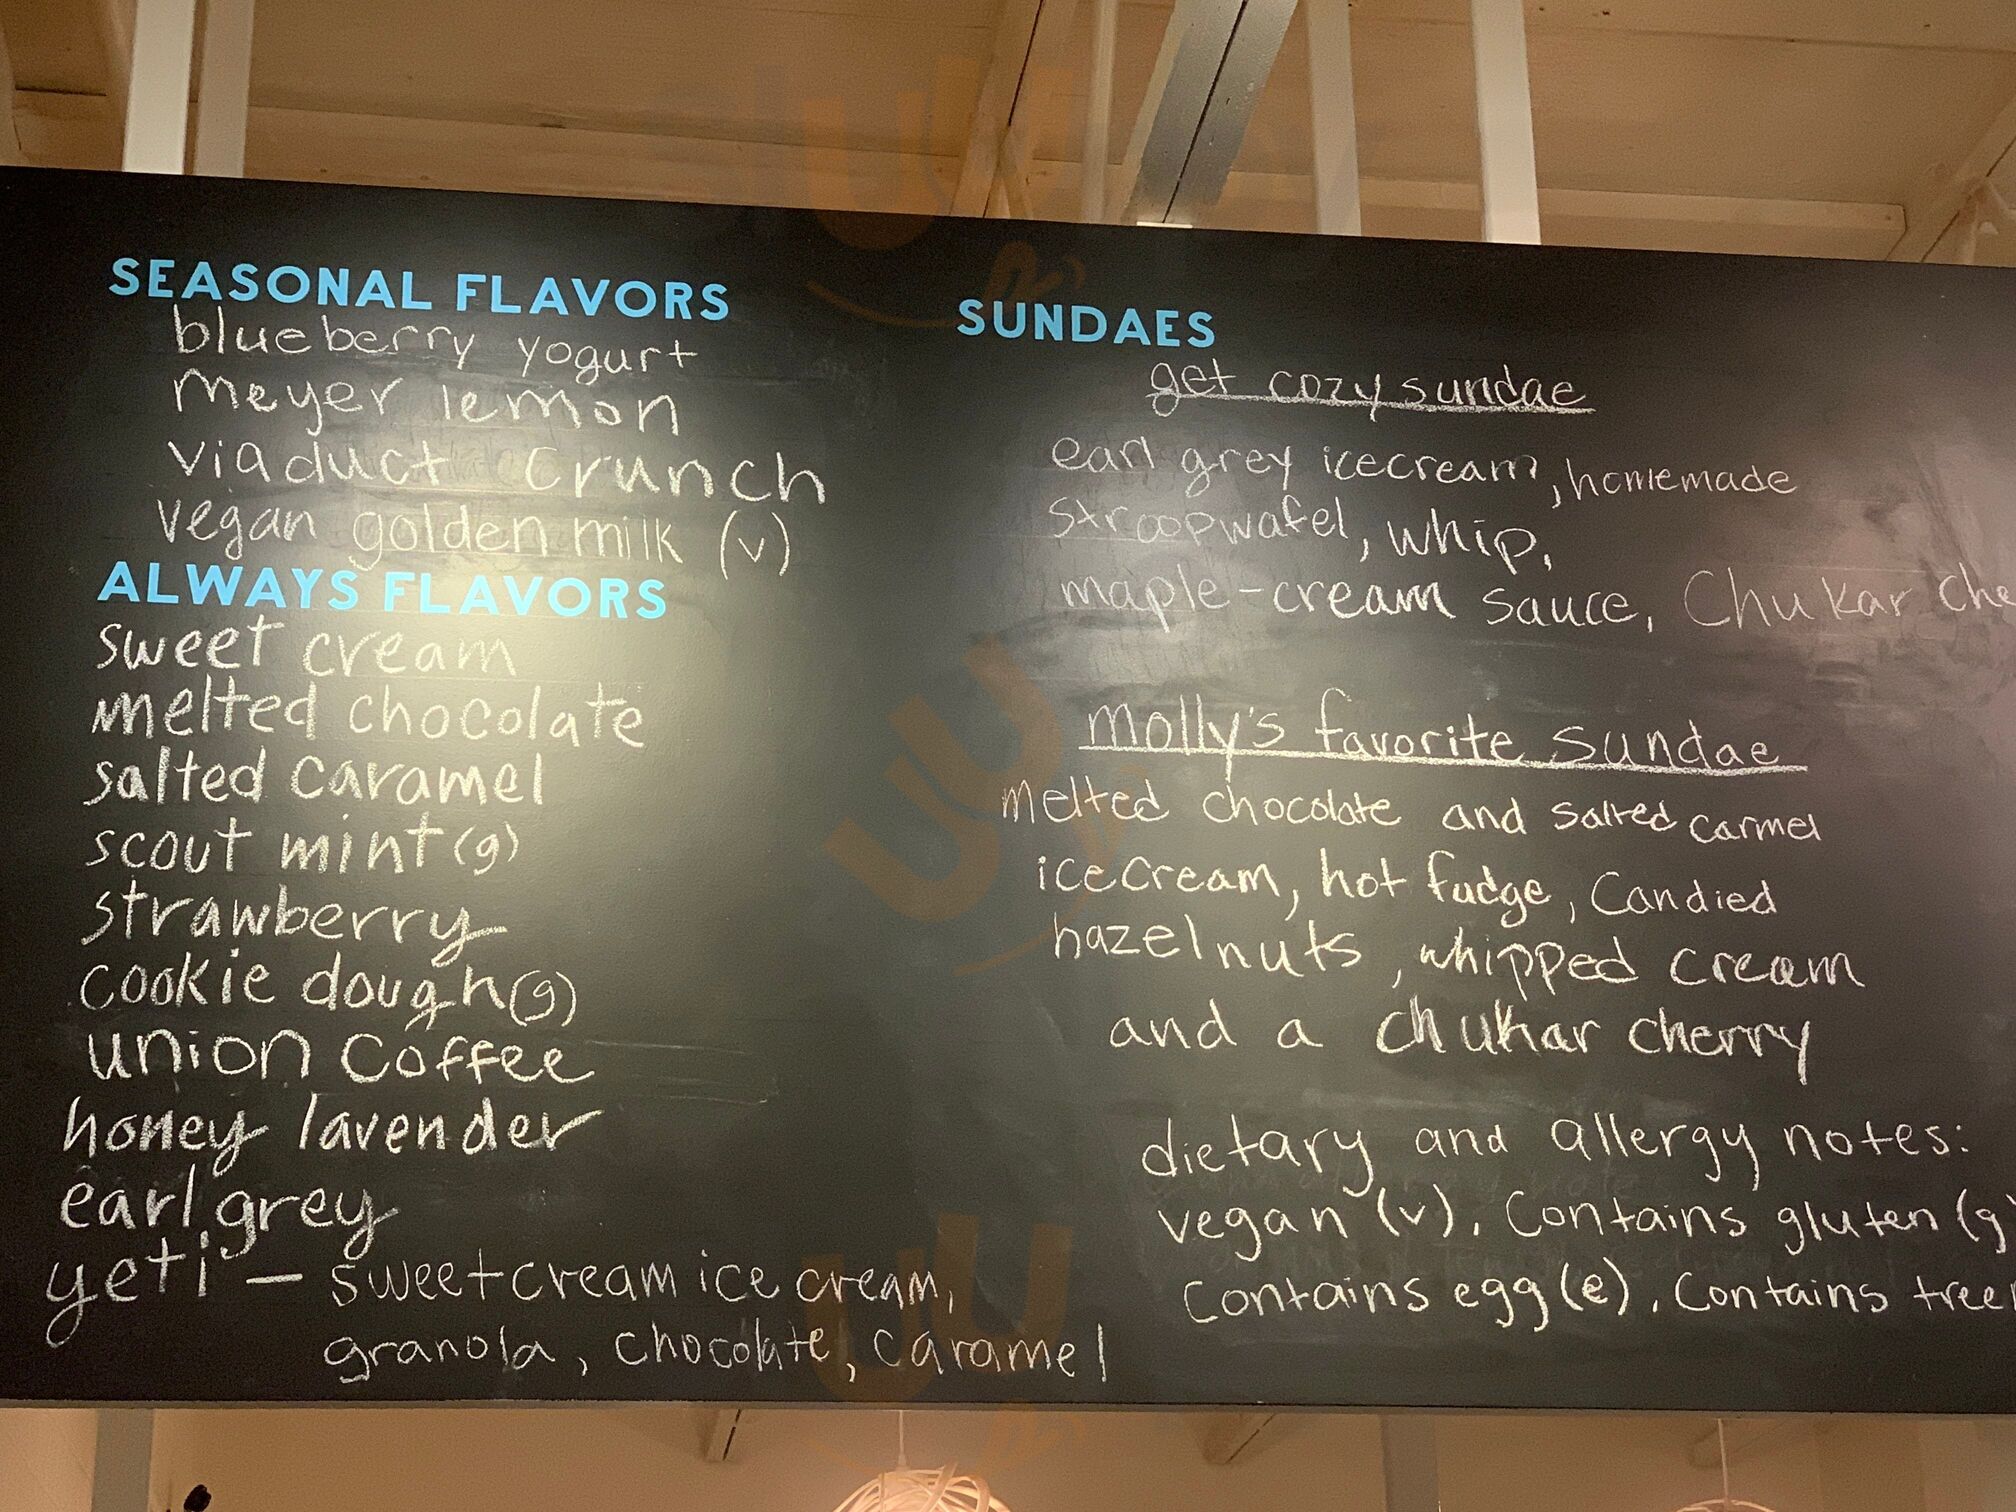 SEASONAL FLAVORS
blueberry yogurt
meyer lemon
viaduct crunch
vegan golden milk (v)
ALWAYS FLAVORS
sweet cream
melted chocolate
salted caramel
scout mint (g)
strawberry
cookie dough (g)
union coffee
honey lavender
earl grey
yeti — sweet cream ice cream,
granola, chocolate, caramel
SUNDAES
get cozy sundae
earl grey icecream, homemade
stroopwafel, whip,
maple-cream sauce, Chukar che
molly's favorite sundae
melted chocolate and salted carmel
icecream, hot fudge, candied
hazelnuts, whipped cream
and a chukar cherry
dietary and allergy notes:
vegan (v). Contains gluten (g)
Contains egg (e). Contains tree